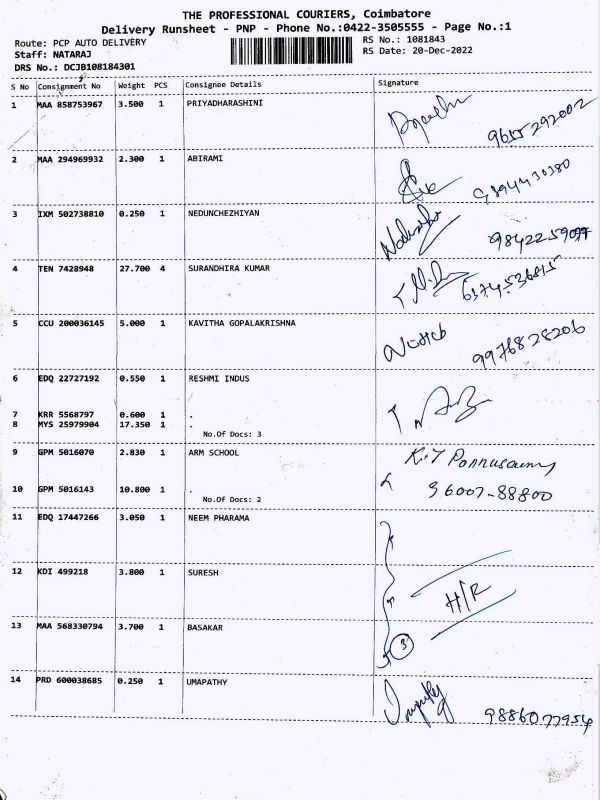 THE PROFESSIONAL COURIERS, Coimbatore
Delivery Runsheet - PNP - Phone No.:0422-3505555 - Page No.:1
Route: PCP AUTO DELIVERY
RS No.: 1081843
Staff: NATARAJ
RS Date: 20-Dec-2022
DRS No.: DCJB108184301
S No Consignment No Weight PCS Consignee Details Signature
1 MAA 858753967 3.500 1 PRIYADHARASHINI
9655292002
2 MAA 294969932 2.300 1 ABIRAMI
9894430380
3 IXM 502738810 0.250 1 NEDUNCHEZHIYAN
9842259097
4 TEN 7428948 27.700 4 SURANDHIRA KUMAR
6374536815
5 CCU 200036145 5.000 1 KAVITHA GOPALAKRISHNA
9976828206
6 EDQ 22727192 0.550 1 RESHMI INDUS
7 KRR 5568797 0.600 1 .
8 MYS 25979904 17.350 1 .
No.Of Docs: 3
9 GPM 5016070 2.830 1 ARM SCHOOL
K.T Ponnusamy
10 GPM 5016143 10.800 1 .
96007-88800
No.Of Docs: 2
11 EDQ 17447266 3.050 1 NEEM PHARAMA
12 KDI 499218 3.800 1 SURESH
H/R
13 MAA 568330794 3.700 1 BASAKAR
3
14 PRD 600038685 0.250 1 UMAPATHY
9886077954